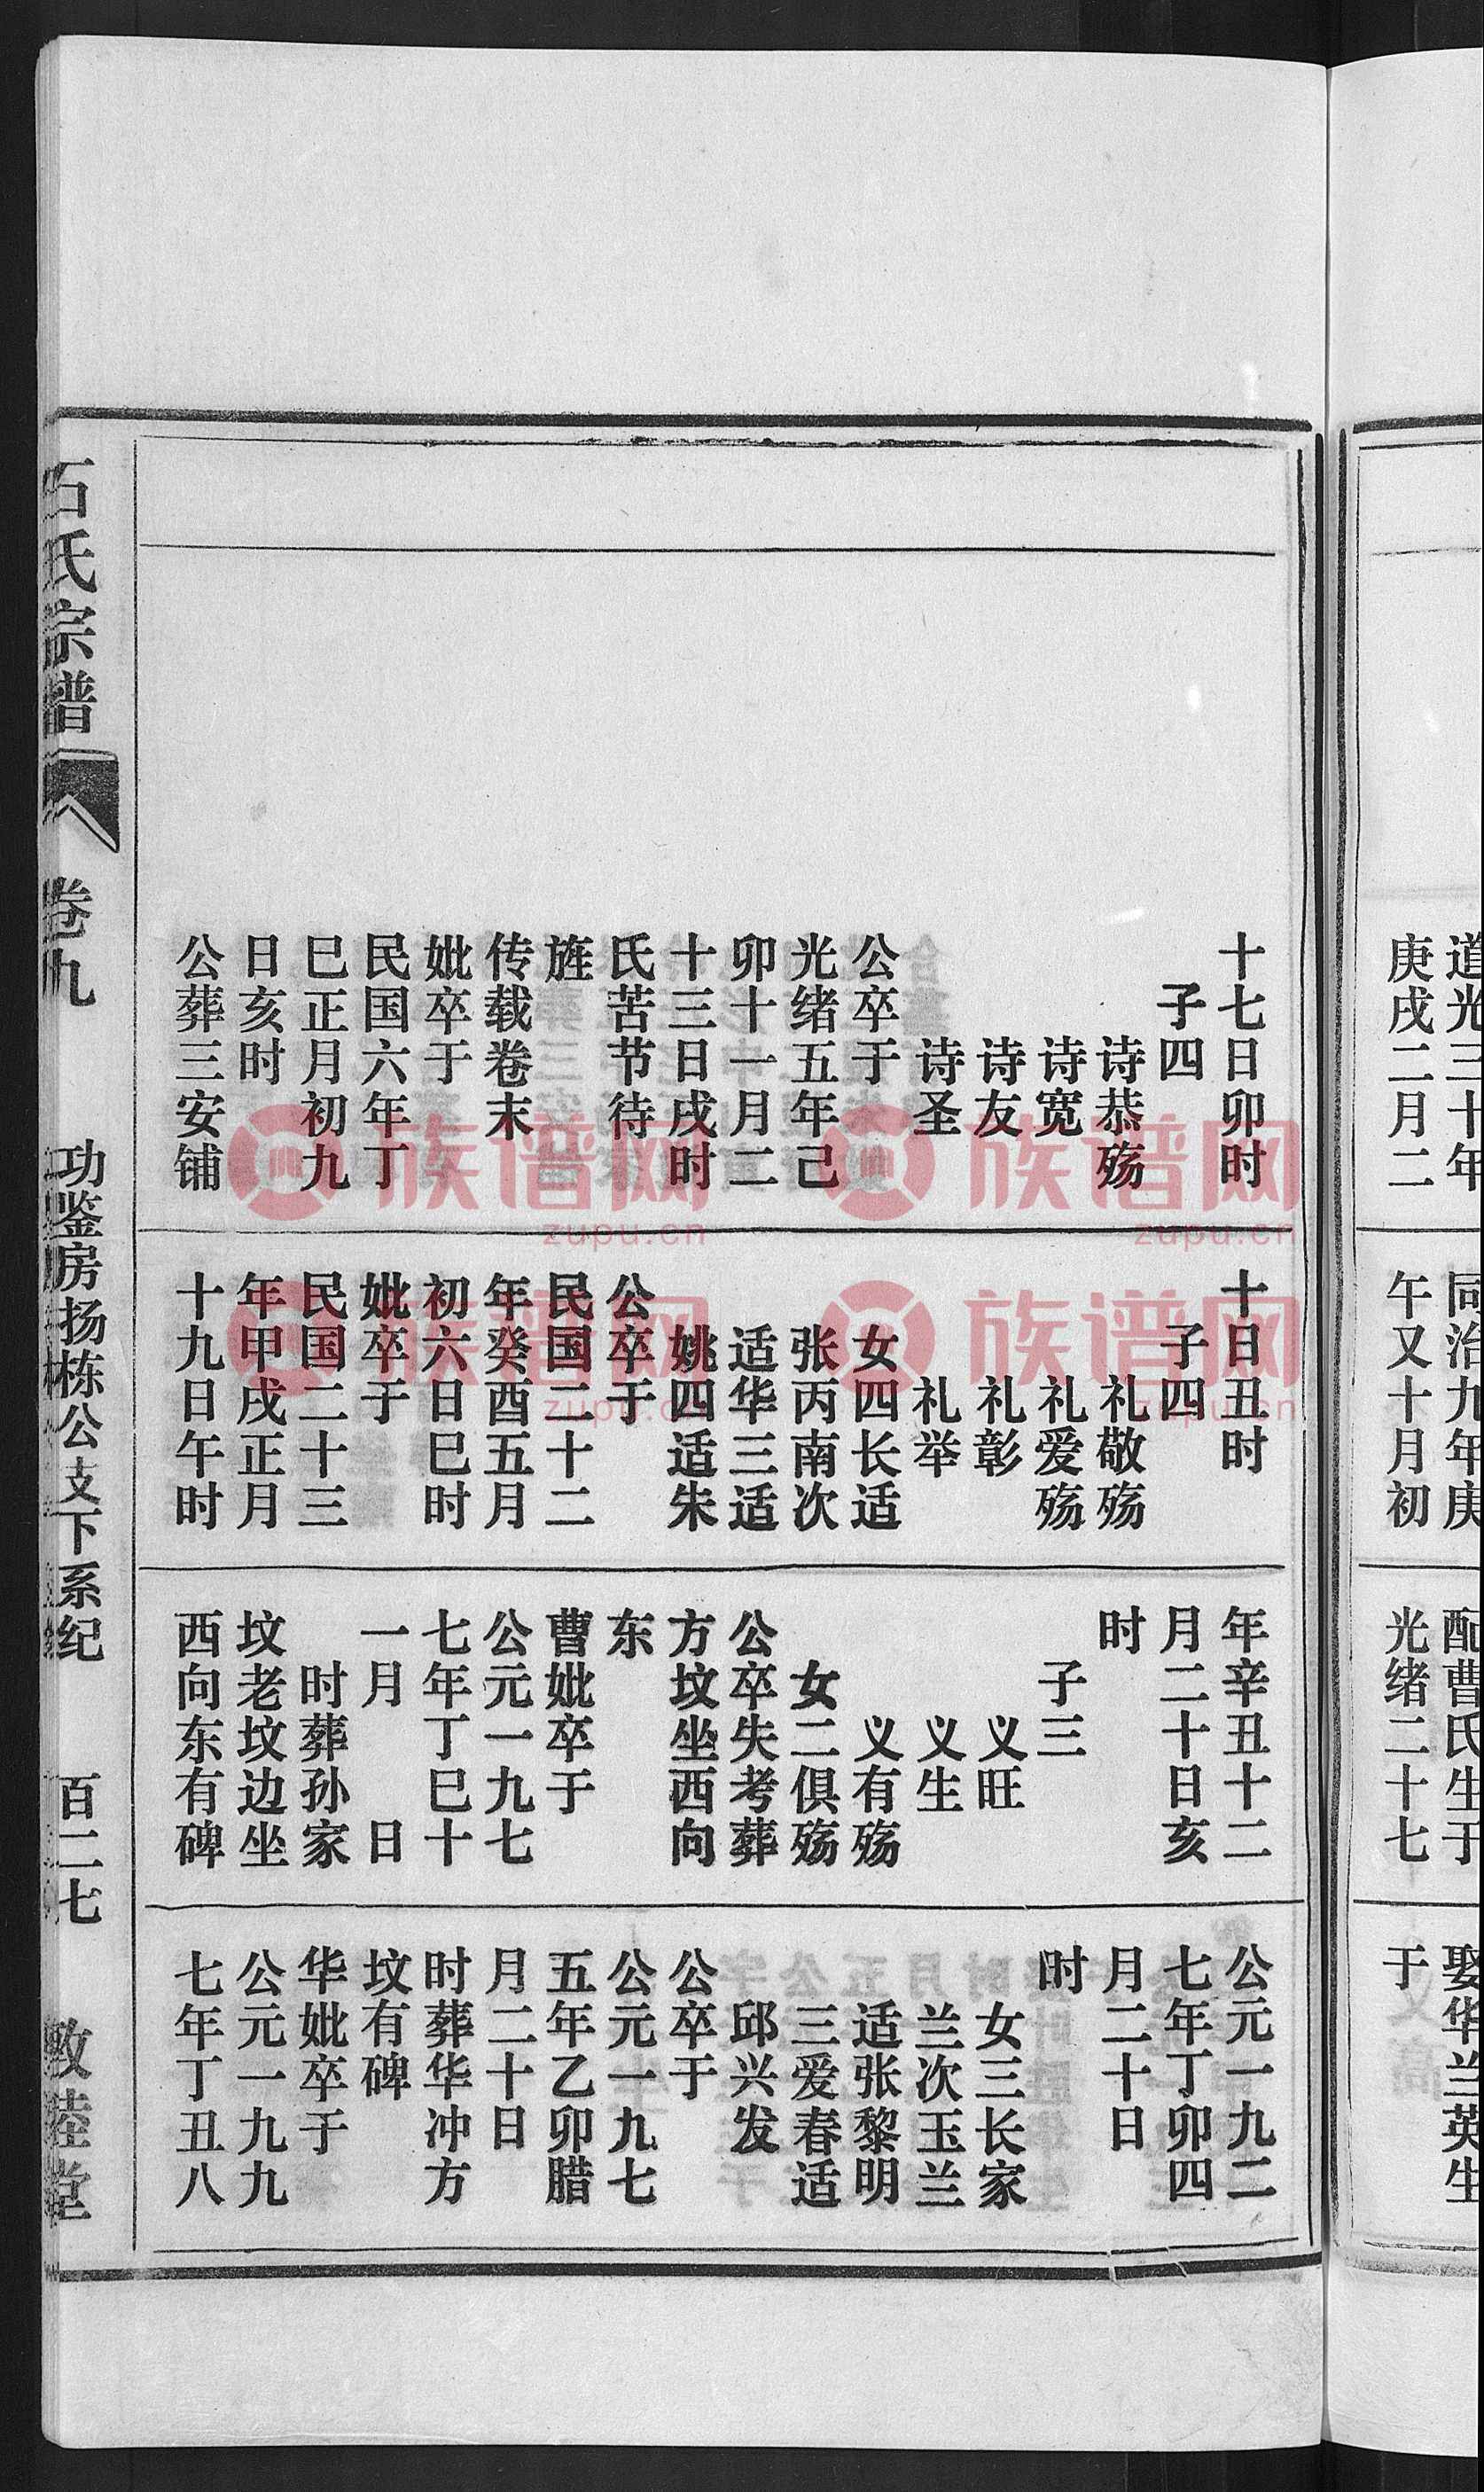 道光三十年
庚戌二月二
同治九年庚
午又十月初
配曹氏生于
光绪二十七
娶华兰英生
于
十七日卯时
子四
诗恭殇
诗宽
诗友
诗圣
公卒于
光绪五年己
卯十一月二
十三日戌时
氏苦节待
旌
传载卷末
妣卒于
民国六年丁
巳正月初九
日亥时
公葬三安铺
十日丑时
子四
礼敬殇
礼爱殇
礼彰
礼举
女四长适
张丙南次
适华三适
姚四适朱
公卒于
民国二十二
年癸酉五月
初六日巳时
妣卒于
民国二十三
年甲戌正月
十九日午时
年辛丑十二
月二十日亥
时
子三
义旺
义生
义有殇
女二俱殇
公卒失考葬
方坟坐西向
东
曹妣卒于
公元一九七
七年丁巳十
一月 日
时葬孙家
坟老坟边坐
西向东有碑
公元一九二
七年丁卯四
月二十日
时
女三长家
兰次玉兰
适张黎明
三爱春适
邱兴发
公卒于
公元一九七
五年乙卯腊
月二十日
时葬华冲方
坟有碑
华妣卒于
公元一九九
七年丁丑八
石氏宗谱
卷九
功鉴房扬栋公支下系纪
百二七
敦睦堂
族谱网
zupu.cn
族谱网
zupu.cn
族谱网
zupu.cn
族谱网
zupu.cn